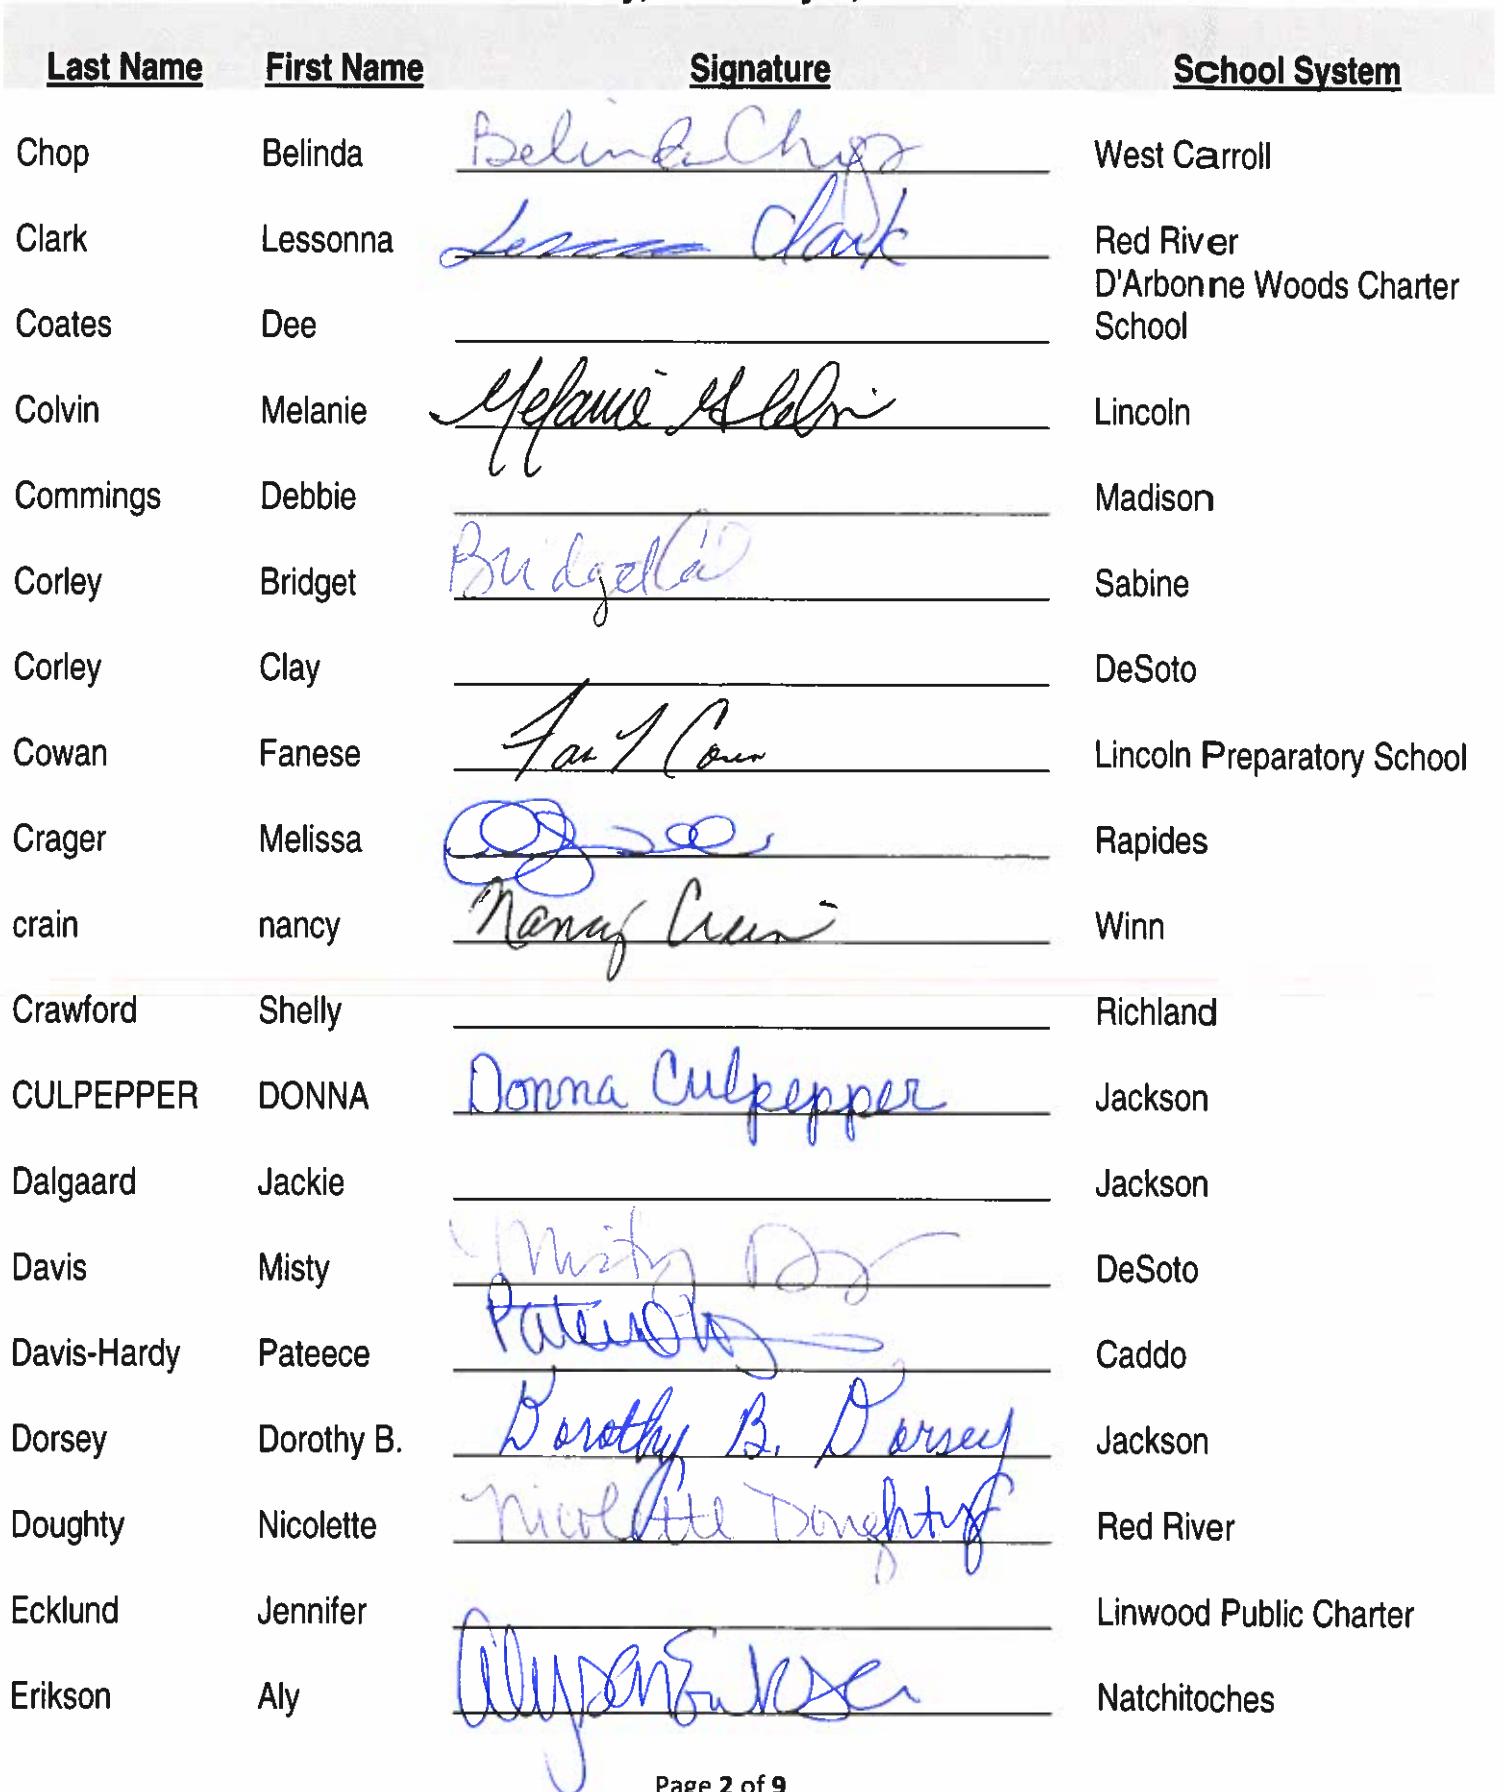 Last Name First Name Signature School System
Chop Belinda Belinda Chop West Carroll
Clark Lessonna Clark Red River
D'Arbonne Woods Charter
Coates Dee School
Colvin Melanie Melanie Lincoln
Commings Debbie Madison
Corley Bridget Bridget Sabine
Corley Clay DeSoto
Cowan Fanese Lincoln Preparatory School
Crager Melissa Rapides
crain nancy Nancy Crain Winn
Crawford Shelly Richland
CULPEPPER DONNA Donna Culpepper Jackson
Dalgaard Jackie Jackson
Davis Misty Misty DeSoto
Davis-Hardy Pateece Caddo
Dorsey Dorothy B. Dorothy B. Dorsey Jackson
Doughty Nicolette Nicolette Doughty Red River
Ecklund Jennifer Linwood Public Charter
Erikson Aly Alysen Erikson Natchitoches
Page 2 of 9